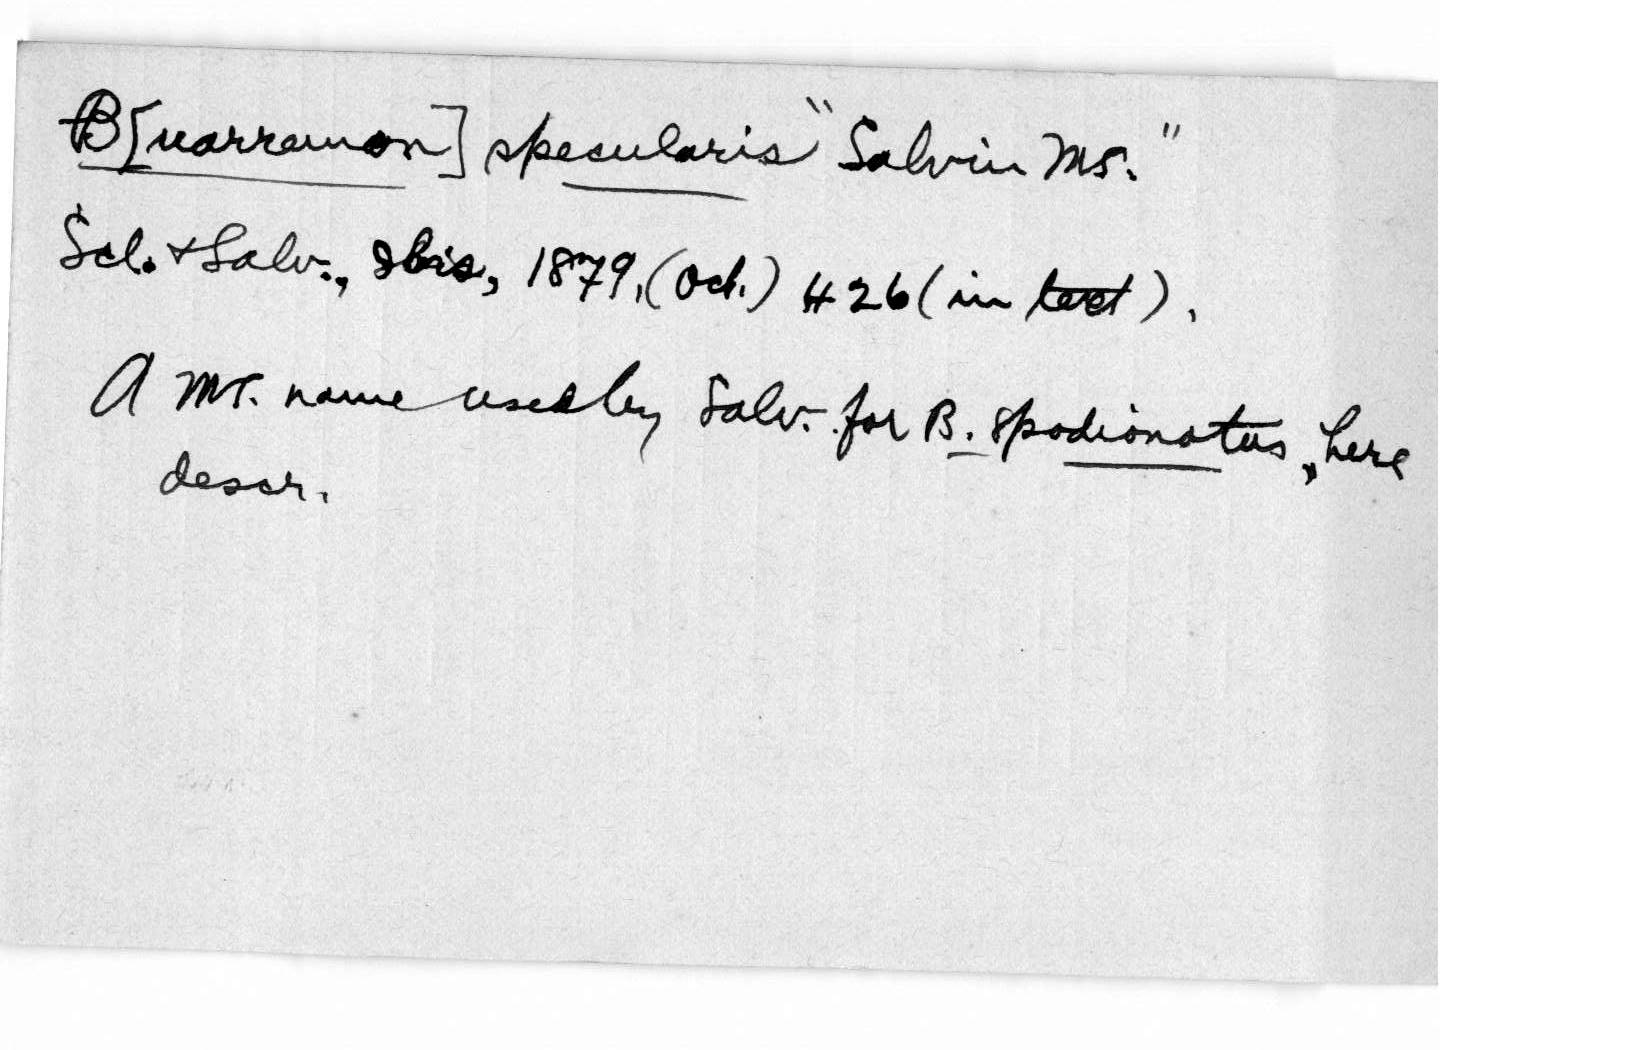 B[uarramon] specularis "Salvin MS."
Scl. + Salv., Ibis, 1879, (Oct.) 426 (in text).
A MS. name used by Salv. for B. spodionotus, here
descr.